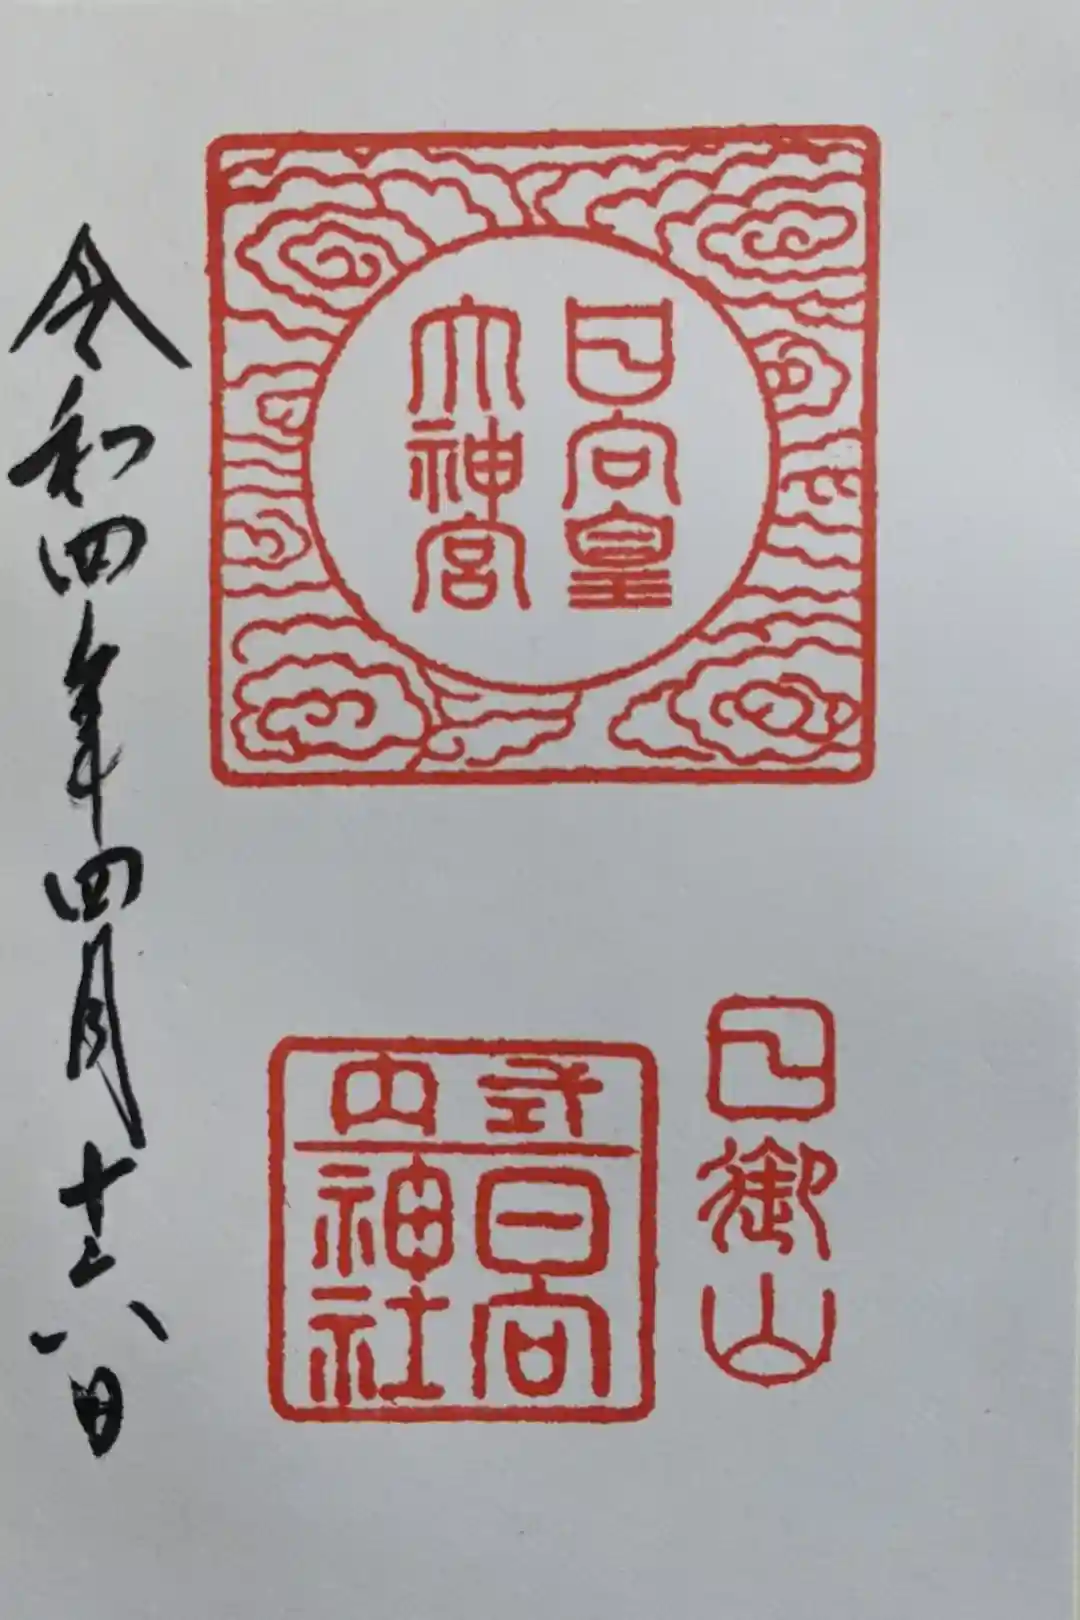 日向皇
大神宮
日御山
式内
日向
神社
令和四年四月十六日